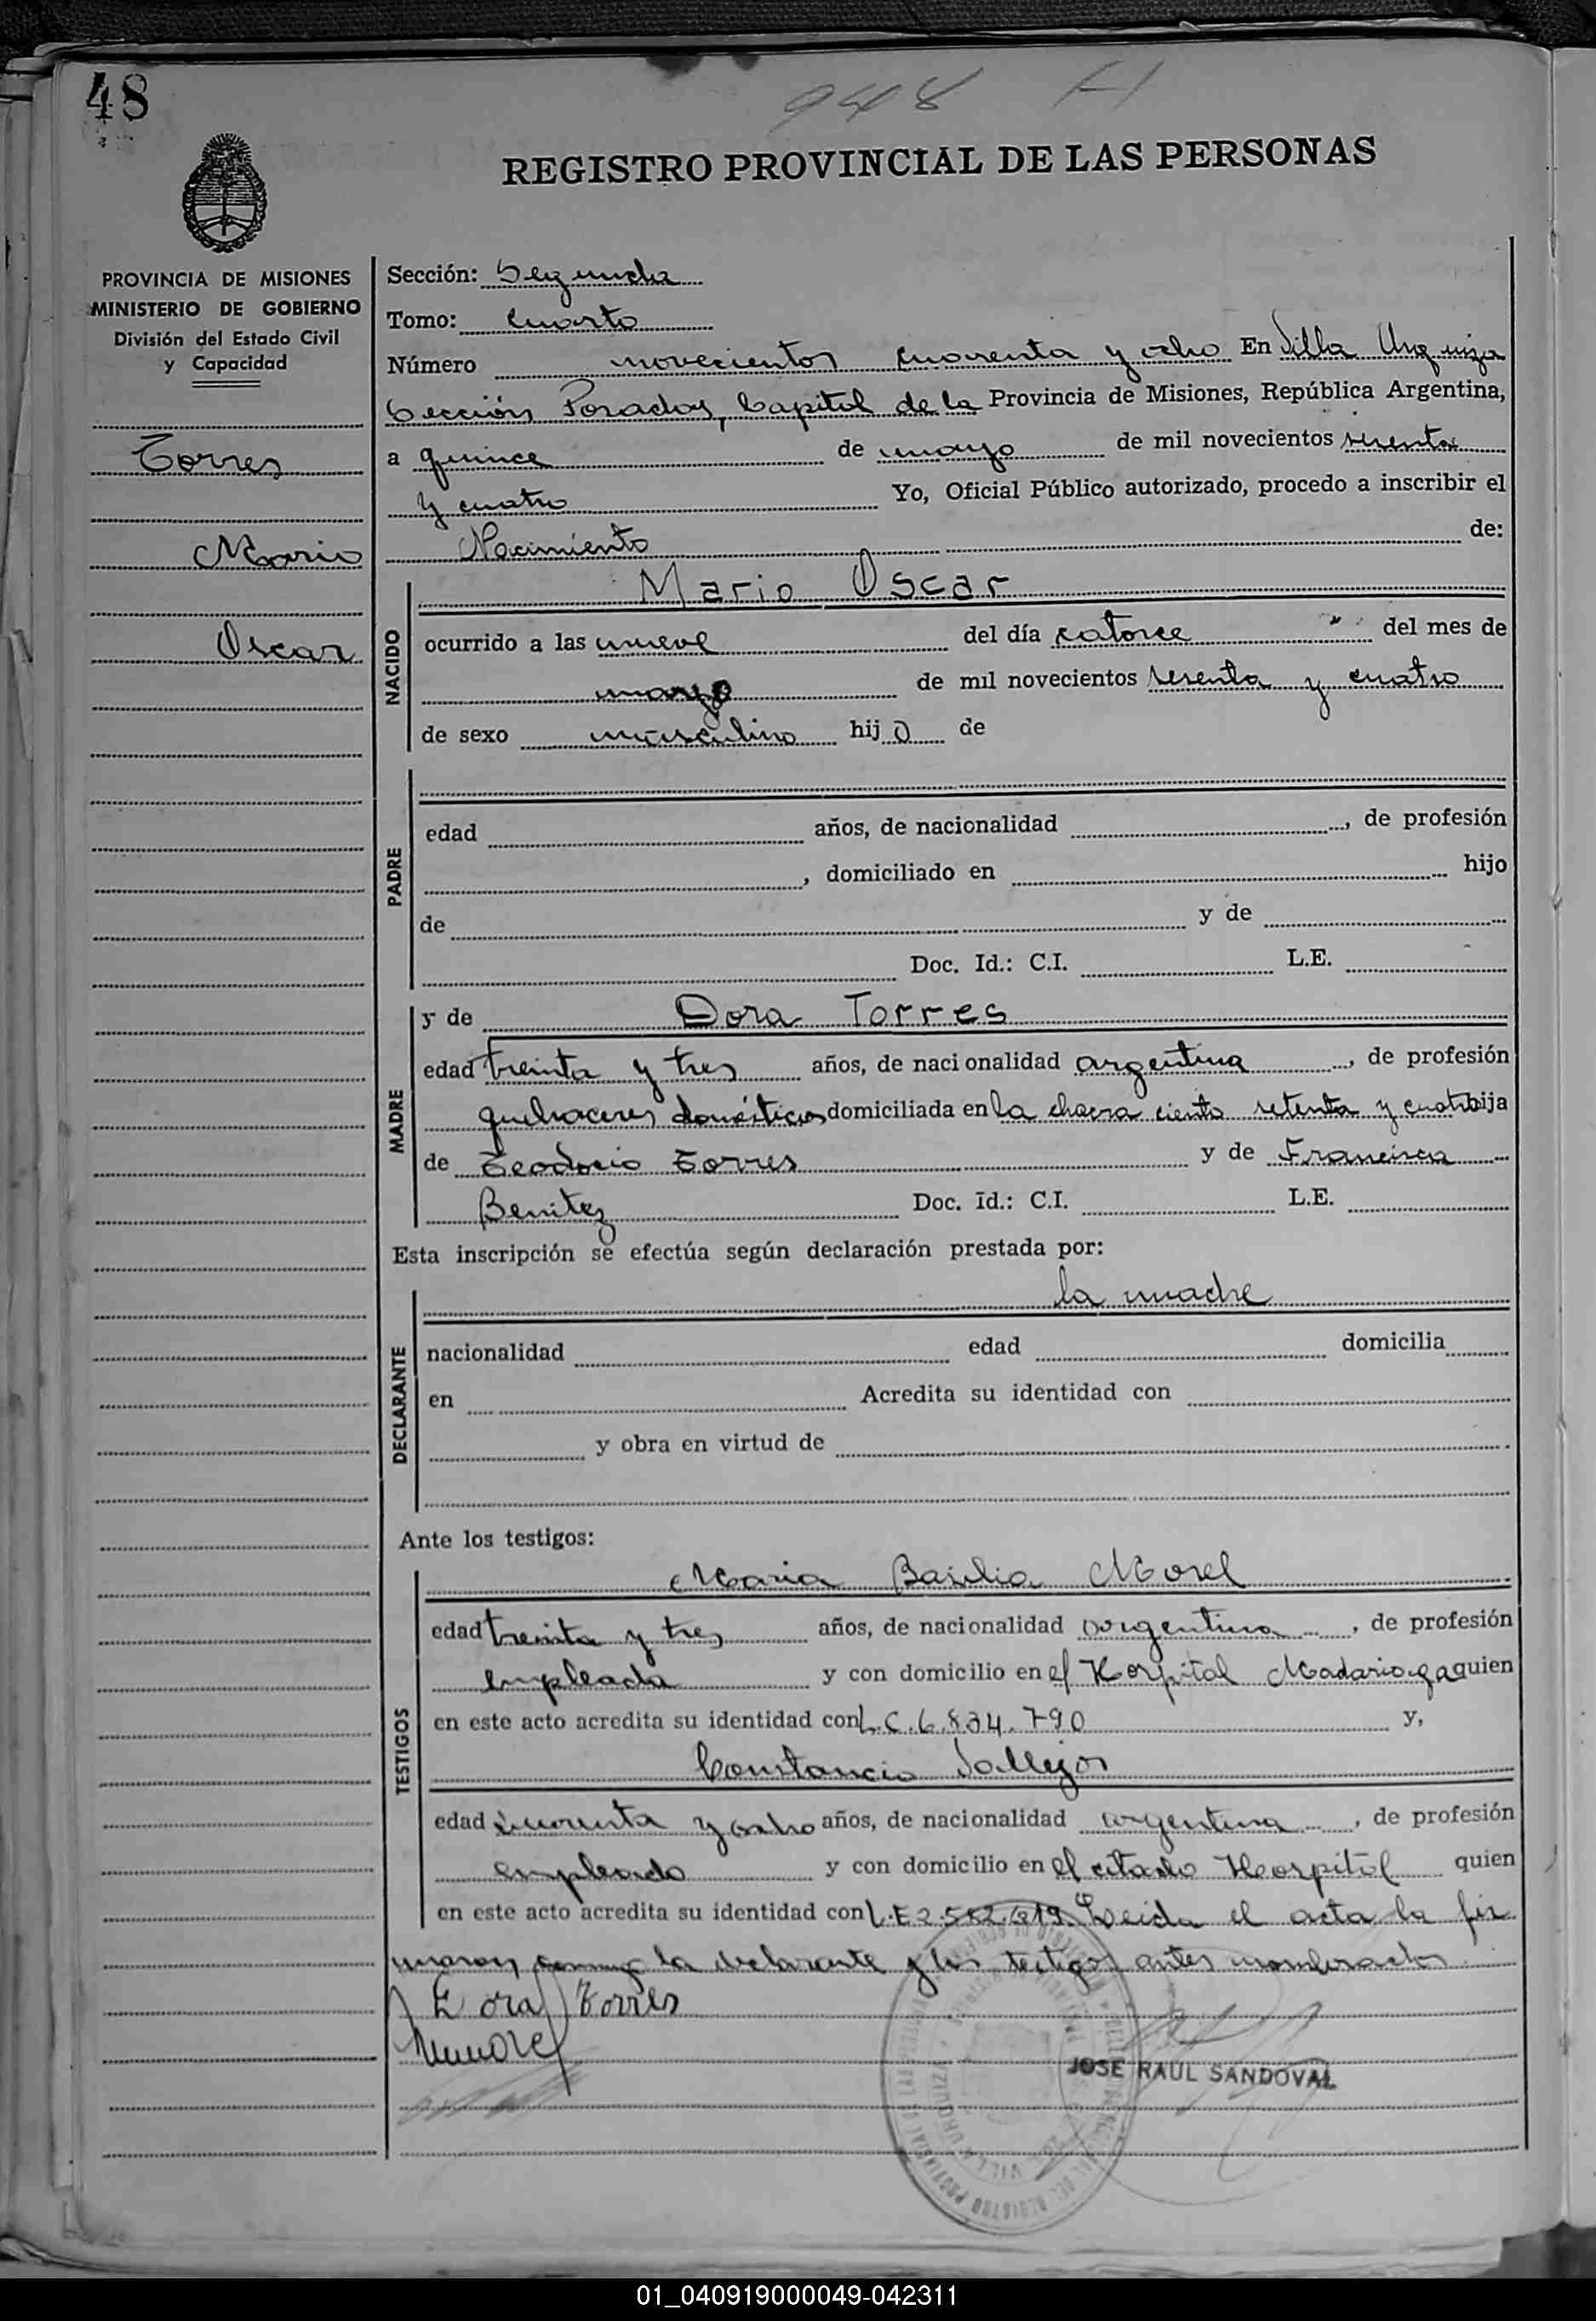 48
948 H
REGISTRO PROVINCIAL DE LAS PERSONAS
PROVINCIA DE MISIONES
MINISTERIO DE GOBIERNO
División del Estado Civil
y Capacidad
Torres
Mario
Oscar
Sección: Segunda
Tomo: Cuarto
Número novecientos cuarenta y ocho En Villa Urquiza
Sección Posadas, Capital de la Provincia de Misiones, República Argentina,
a quince de mayo de mil novecientos sesenta
y cuatro Yo, Oficial Público autorizado, procedo a inscribir el
Nacimiento de:
NACIDO
Mario Oscar
ocurrido a las nueve del día catorce del mes de
marzo de mil novecientos sesenta y cuatro
de sexo masculino hijo de
PADRE
edad años, de nacionalidad , de profesión
, domiciliado en hijo
de y de
Doc. Id.: C.I. L.E.
MADRE
y de Dora Torres
edad treinta y tres años, de nacionalidad argentina , de profesión
quehaceres domésticos domiciliada en la chacra ciento setenta y cuatro hija
de Teodocio Torres y de Francisca
Benitez Doc. Id.: C.I. L.E.
Esta inscripción se efectúa según declaración prestada por:
DECLARANTE
la madre
nacionalidad edad domicilia
en Acredita su identidad con
y obra en virtud de
Ante los testigos:
TESTIGOS
Maria Basilia Morel
edad treinta y tres años, de nacionalidad argentina , de profesión
empleada y con domicilio en el Hospital Madariaga quien
en este acto acredita su identidad con L.C. 6.834.790 y,
Constancio Vallejos
edad cuarenta y ocho años, de nacionalidad argentina , de profesión
empleado y con domicilio en el citado Hospital quien
en este acto acredita su identidad con L.E 2.582.619. Leida el acta la fir
maron la declarante y los testigos antes nombrados
Dora Torres
JOSE RAUL SANDOVAL
VILLA URQUIZA
01_040919000049-042311